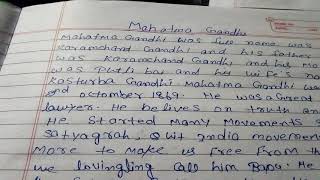 Mahatma Gandhi
Mahatma Gandhi was full name was
Karamchand Gandhi and his father
was Karamchand Gandhi and his mo
was Putli bai and his wife's na
Kasturba Gandhi. Mahatma Gandhi wa
2nd octomber 1869. He was a Great
lawyer. He belives on truth an
He started many movements s
Satyagrah, Quit India movemen
more to make us free from th
we lovingling call him Bapu. He